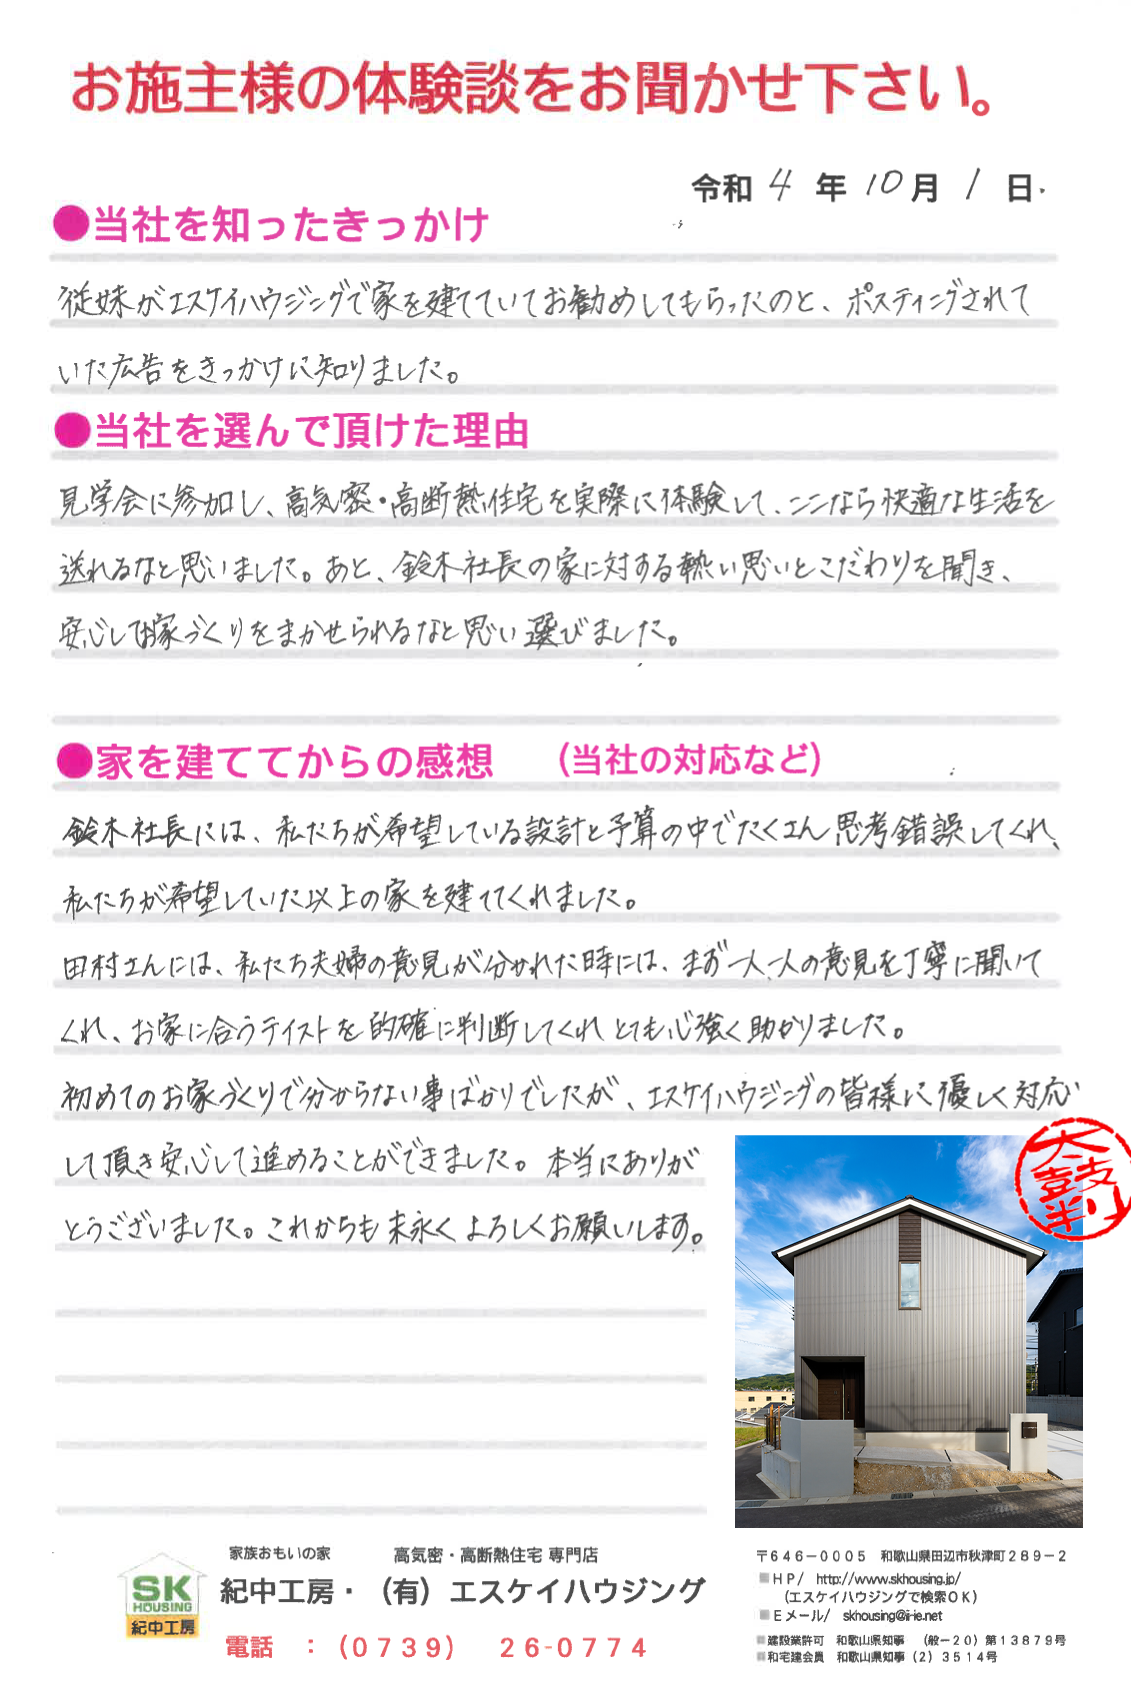 お施主様の体験談をお聞かせ下さい。
令和 4 年 10 月 1 日
●当社を知ったきっかけ
従妹がエスケイハウジングで家を建てていてお勧めしてもらったのと、ポスティングされて
いた広告をきっかけに知りました。
●当社を選んで頂けた理由
見学会に参加し、高気密・高断熱住宅を実際に体験して、ここなら快適な生活を
送れるなと思いました。あと、鈴木社長の家に対する熱い思いとこだわりを聞き、
安心してお家づくりをまかせられるなと思い選びました。
●家を建ててからの感想 （当社の対応など）
鈴木社長には、私たちが希望している設計と予算の中でたくさん思考錯誤してくれ、
私たちが希望していた以上の家を建ててくれました。
田村さんには、私たち夫婦の意見が分かれた時には、まず一人一人の意見を丁寧に聞いて
くれ、お家に合うテイストを的確に判断してくれとても心強く助かりました。
初めてのお家づくりで分からない事ばかりでしたが、エスケイハウジングの皆様に優しく対応
して頂き安心して進めることができました。本当にありが
とうございました。これからも末永くよろしくお願いします。
太鼓判
家族おもいの家 高気密・高断熱住宅 専門店
紀中工房・（有）エスケイハウジング
SK
HOUSING
紀中工房
電話 ：（0739） 26-0774
〒646－0005 和歌山県田辺市秋津町289－2
■HP/ http://www.skhousing.jp/
（エスケイハウジングで検索OK）
■Eメール/ skhousing@i-ie.net
■建設業許可 和歌山県知事 （般－20）第13879号
■和宅建会員 和歌山県知事（2）3514号